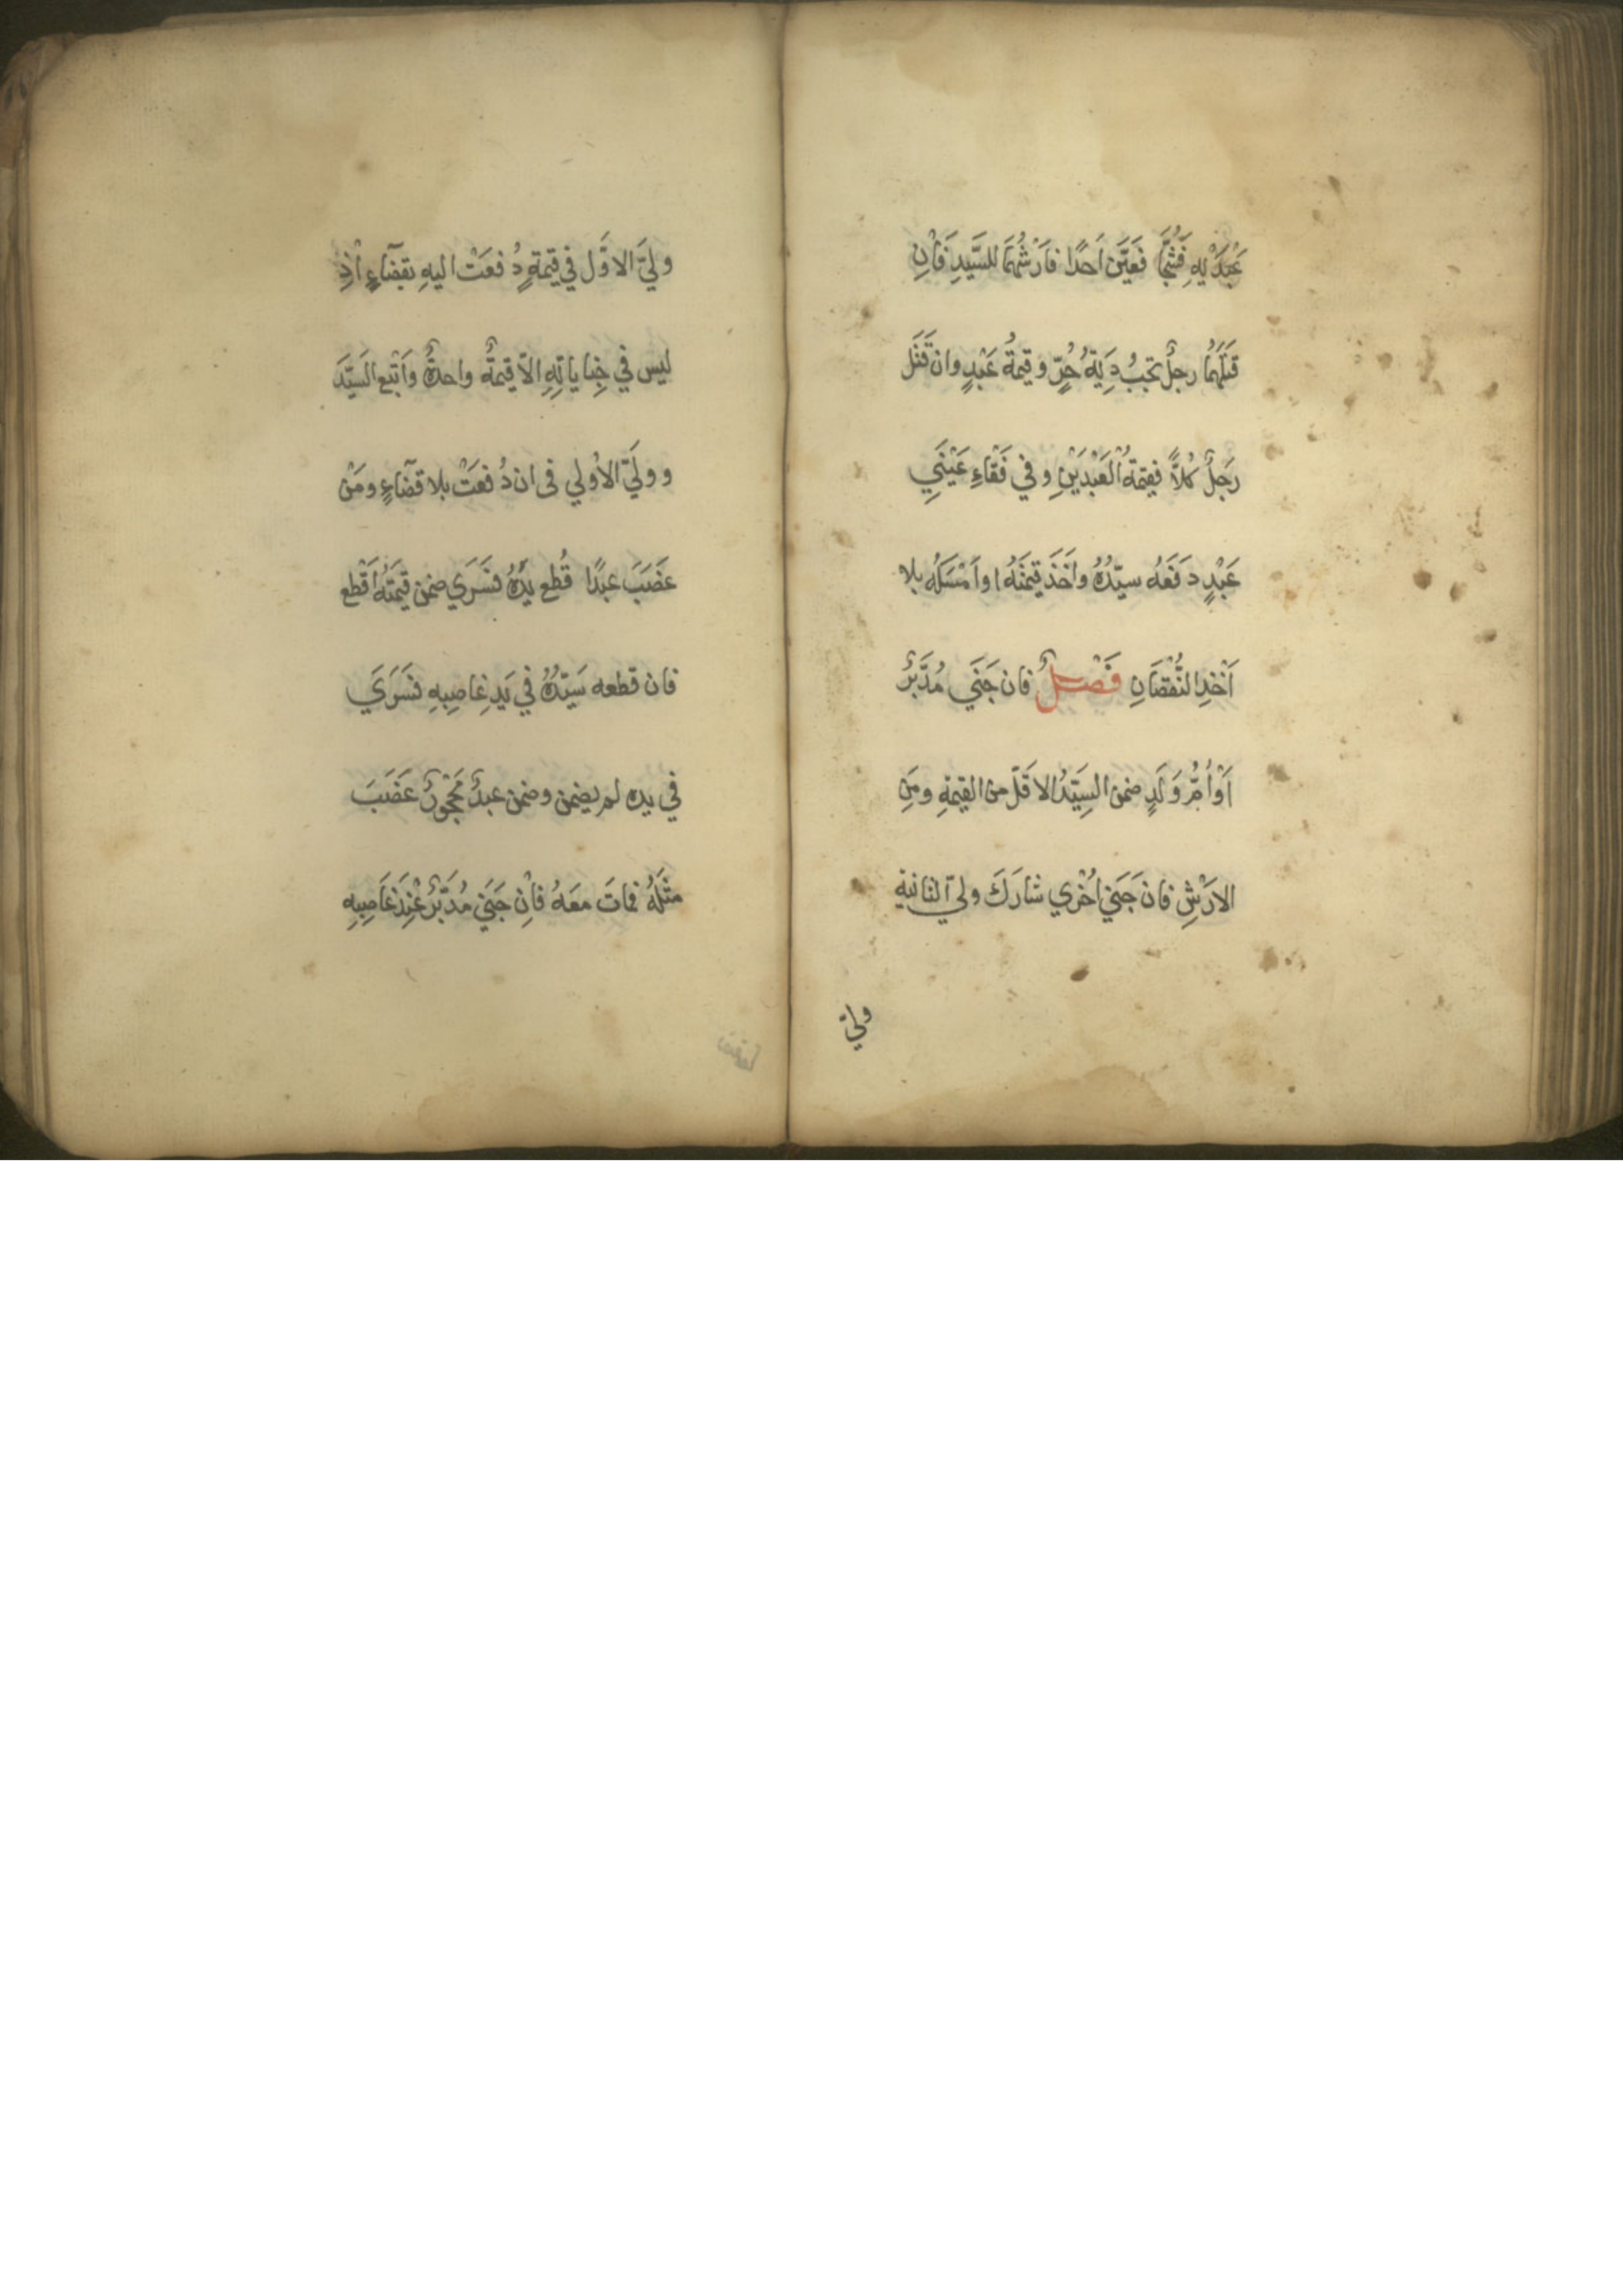 عَبْدَيْهِ فَشُجَّا فَعَيَّنَ اَحَدًا فَاَرْشُهُمَا للسَّيِّدِ فَاِنْ
قَتَلَهُمَا رجلٌ تجبُ دِيَةُ حُرٍّ وقيمةُ عَبْدٍ وان قَتَل
رَجلٌ كُلاًّ فقيمَةُ الْعَبْدَيْنِ وفي فَقَاءِ عَيْنَيِ
عَبْدٍ دَفَعَه سيّدُهُ واَخَذَ قيمَتَهُ اواَمْسَكَه بلا
اَخْذِ النُّقْصَانِ فَصْلٌ فان جَنَي مُدَبَّرٌ
اَوْ اُمُّ وَلَدٍ ضمن السَيِّدُ الاقَلّ من القيمَةِ ومِنَ
الاَرْشِ فان جَنَي اُخْرَي شارَكَ وليّ الثانية
وليّ
وليَّ الاوَّل في قيمَةٍ دُفعَتْ اليهِ بقضَآءٍ اِذْ
ليس في جِنايَاتِهِ الاّ قيمةٌ واحدةٌ واَتْبع السَيِّدَ
و وليَّ الاُولي في ان دُفعَتْ بلا قضَآءٍ ومَنْ
غَصَبَ عبدًا قُطع يَدُهُ فسَرَي ضمن قيمَتَهُ اَقْطع
فان قطعه سَيِّدُهُ في يَدِ غاصِبِهِ فسَرَي
في يده لم يضمن وضمن عبدٌ مَحْجورٌ غَصَبَ
مثلَهُ فماتَ معَهُ فاِنْ جَنَي مُدَبَّرٌ عِنْدَ غَاصِبِهِ